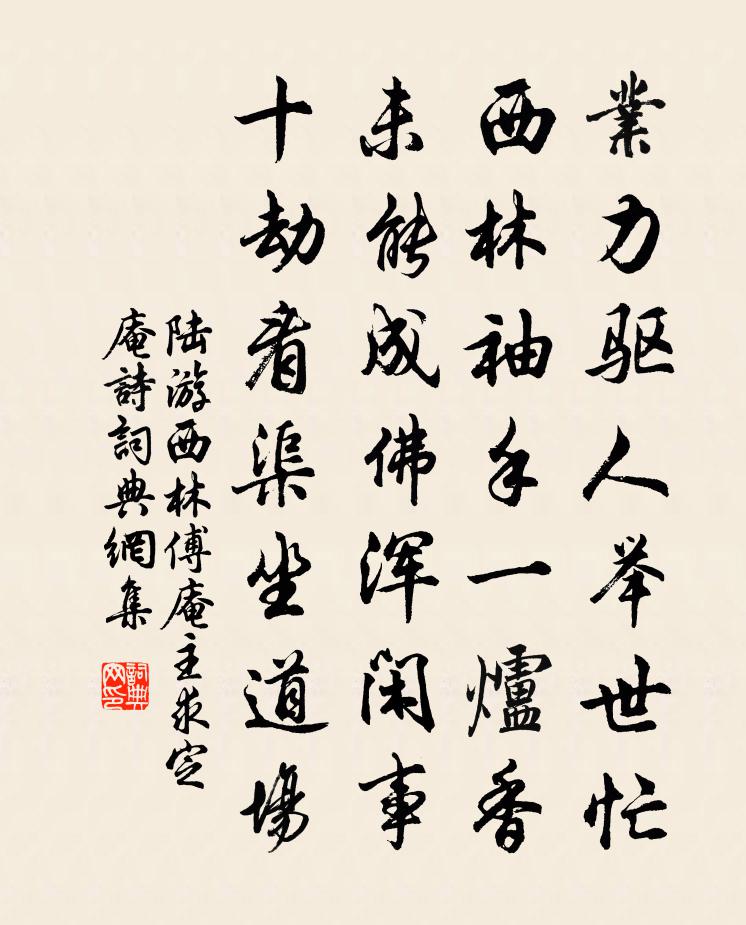 業力驱人举世忙
西林袖手一爐香
未能成佛浑閑事
十劫看渠坐道場
陆游西林傅庵主求定
庵詩詞典網集
詞典
网印